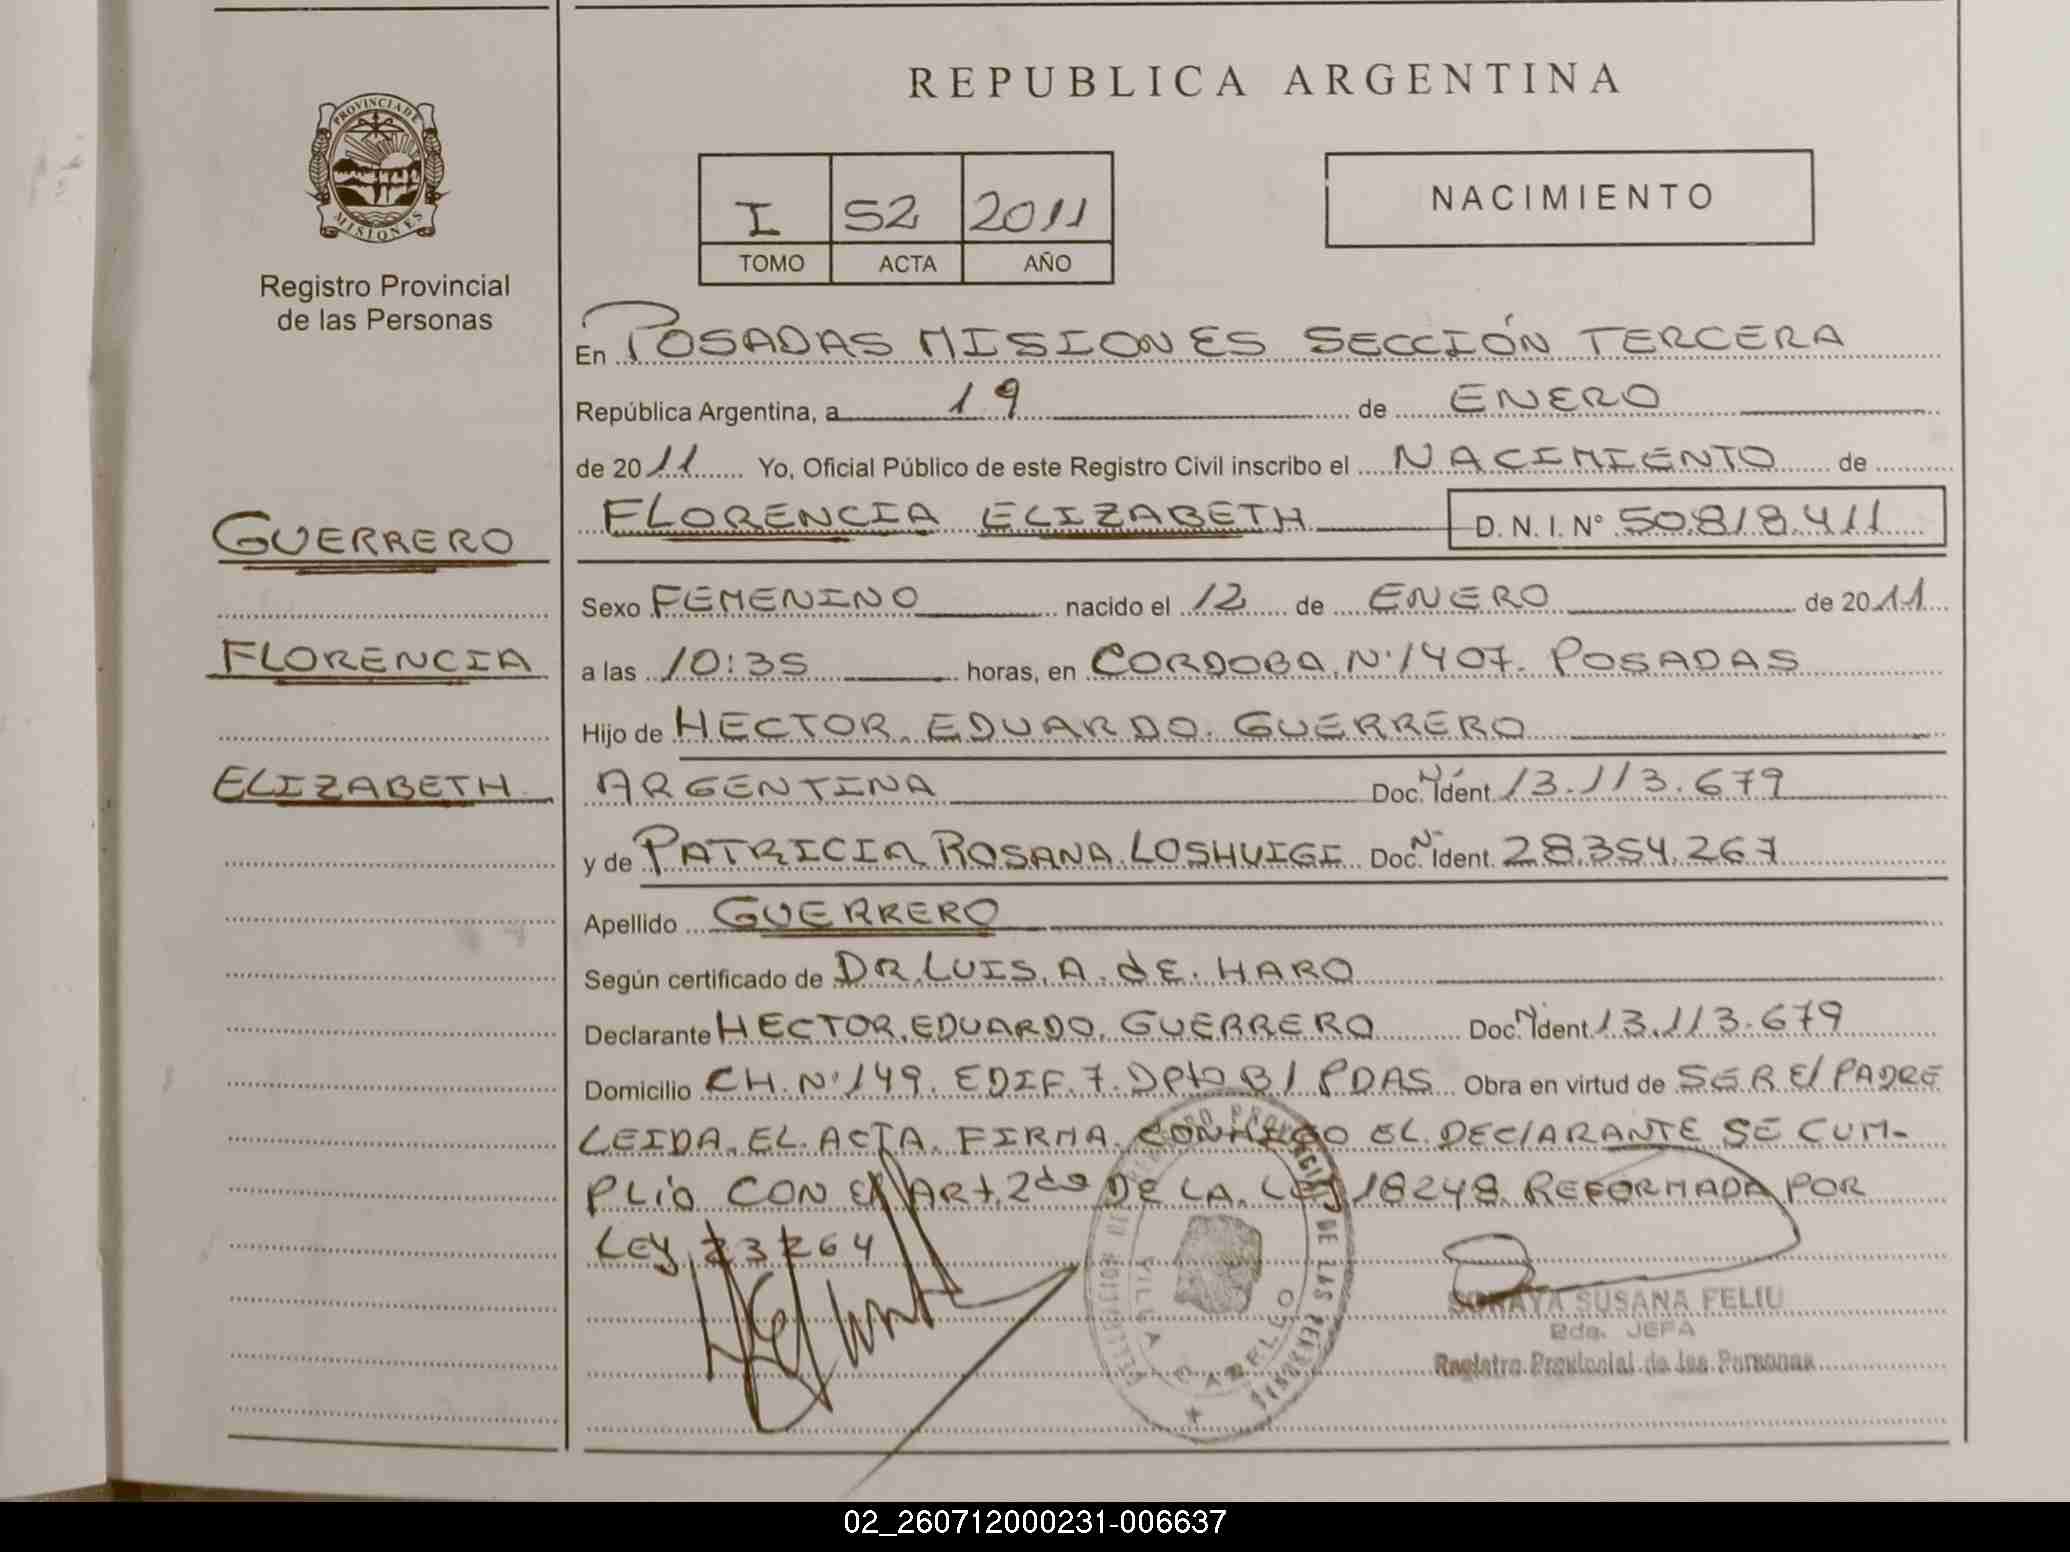 REPUBLICA ARGENTINA
PROVINCIA DE
MISIONES
Registro Provincial
de las Personas
NACIMIENTO
I 52 2011
TOMO ACTA AÑO
En POSADAS MISIONES SECCIÓN TERCERA
República Argentina, a 19 de ENERO
de 2011 Yo, Oficial Público de este Registro Civil inscribo el NACIMIENTO de
FLORENCIA ELIZABETH D. N. I. N° 50.818.411
GUERRERO
FLORENCIA
ELIZABETH
Sexo FEMENINO nacido el 12 de ENERO de 2011
a las 10:35 horas, en CORDOBA N° 1407. POSADAS
Hijo de HECTOR EDUARDO GUERRERO
ARGENTINA Doc. N° Ident. 13.113.679
y de PATRICIA ROSANA LOSHUIGI Doc. N° Ident. 28.354.267
Apellido GUERRERO
Según certificado de DR. LUIS. A. dE. HARO
Declarante HECTOR EDUARDO GUERRERO Doc. N° Ident. 13.113.679
Domicilio CH. N° 149. EDIF. 7. Dpto B/ PDAS Obra en virtud de SER El PADRE
LEIDA EL ACTA FIRMA CONMIGO EL DEClARANTE SE CUM-
PLió CON El ARt. 2do DE LA LEY 18248 REFORMADA POR
LEY 23264
VILLA CABELLO
SORAYA SUSANA FELIU
JEFA
Registro Provincial de las Personas
02_260712000231-006637